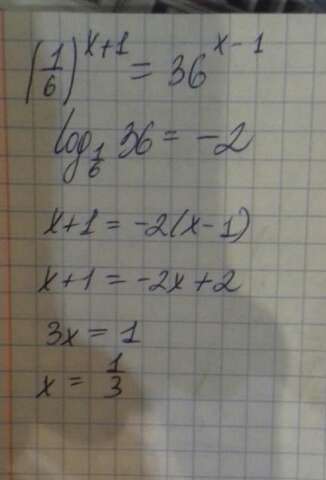 (1/6)^(x+1) = 36^(x-1)
log_(1/6) 36 = -2
x+1 = -2(x-1)
x+1 = -2x+2
3x = 1
x = 1/3